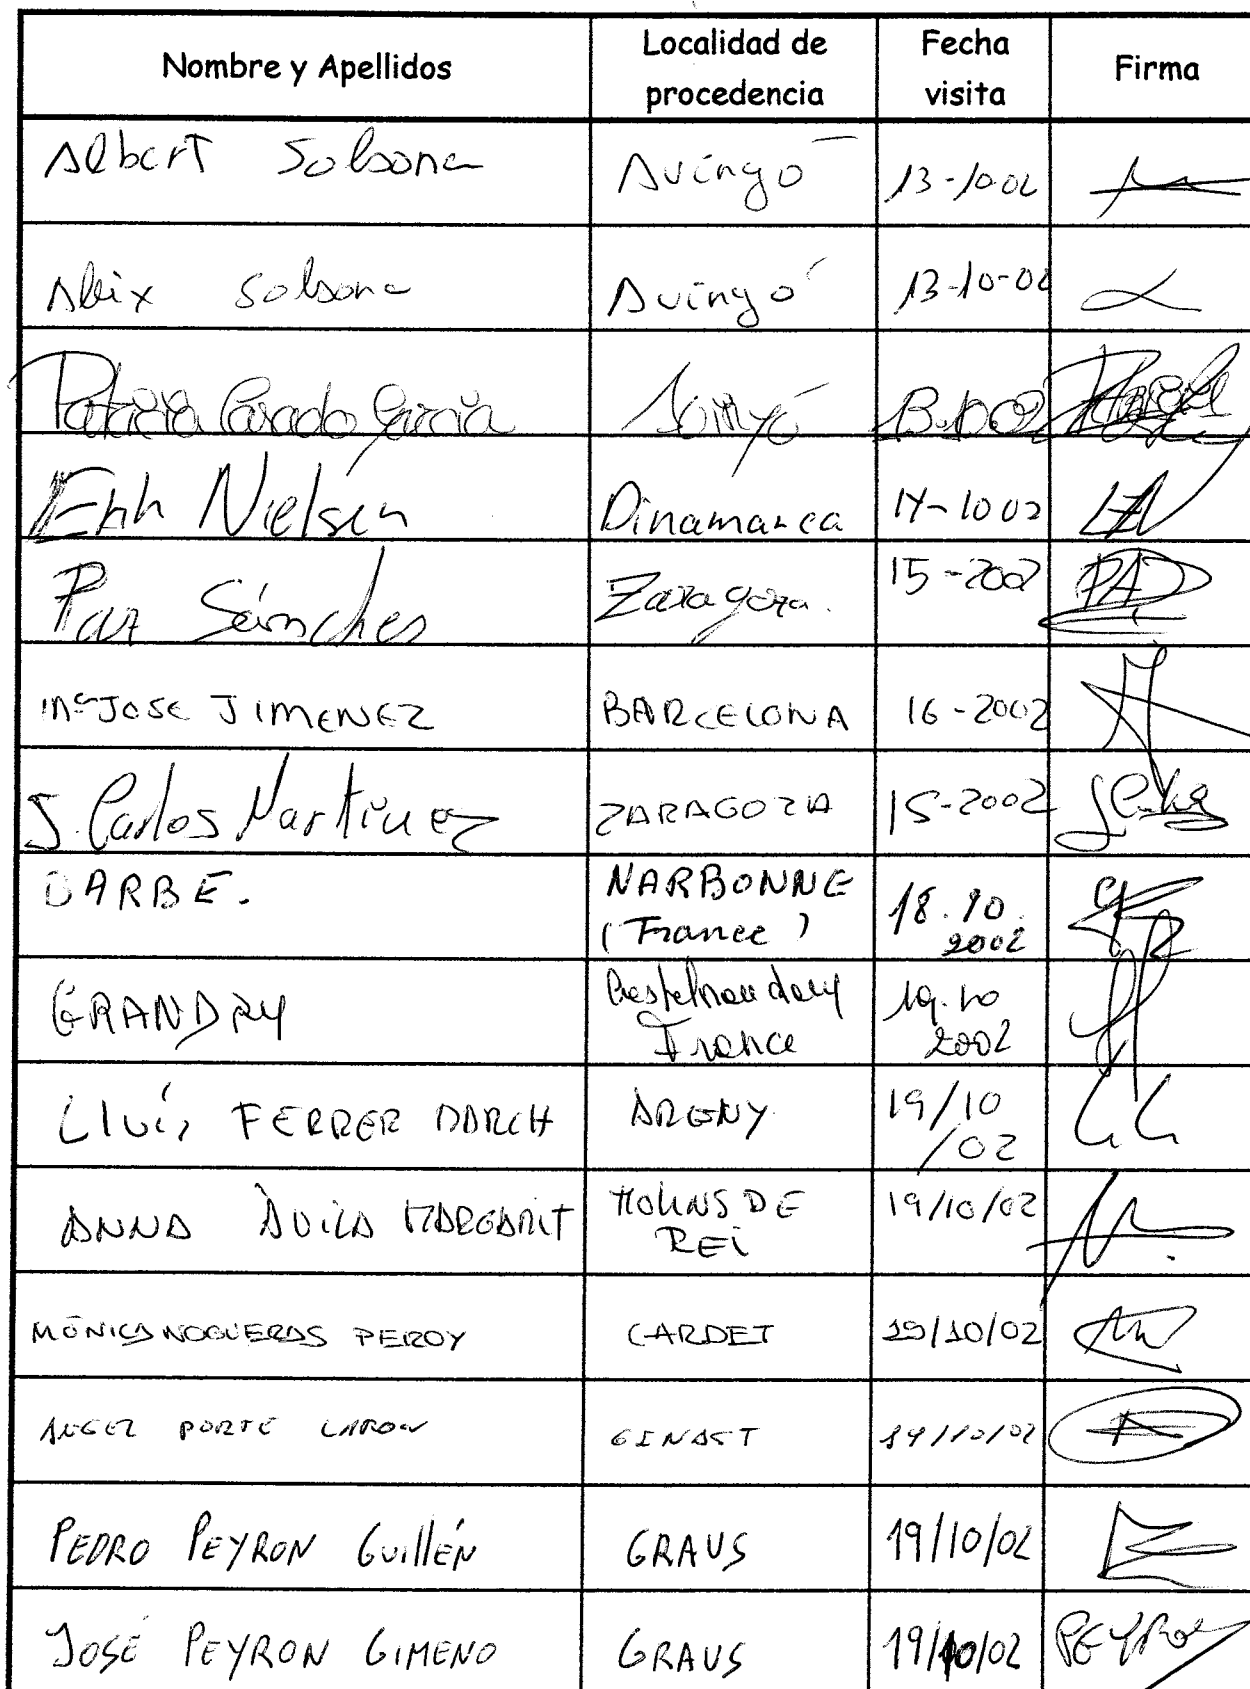 Nombre y Apellidos Localidad de procedencia Fecha visita Firma
Albert Solsona Avinyó 13-10-02
Aleix Solsona Avinyó 13-10-02
Patricia Casado Garcia 13.10.02
Erih Nielsen Dinamarca 14-10 02
Paz Sánches Zaragoza. 15-2002 PAZ
Mª JOSE JIMENEZ BARCELONA 16-2002
J. Carlos Martinez ZARAGOZA 15-2002
BARBE. NARBONNE
(France) 18.10.
2002
GRANDRY Castelnaudary
France 19.10
2002
LLUíS FERRER DARCH ARENY 19/10
/02
ANNA ÀVILA MARGARIT MOLINS DE
REI 19/10/02
MÓNICA NOGUERAS PEROY CARDET 19/10/02
ANGEL PORTE GINAST 19/10/02
PEDRO PEYRON Guillén GRAUS 19/10/02
JOSÉ PEYRON GIMENO GRAUS 19/10/02 PEYRON